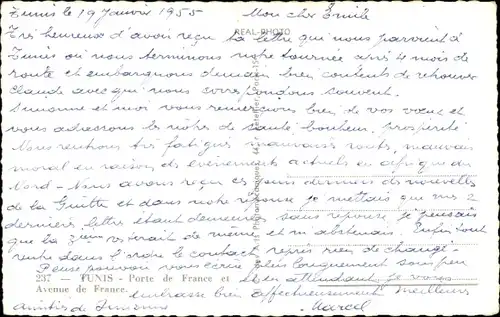 Tunis le 19 Janvier 1955 Mon cher Emile
REAL-PHOTO
Très heureux d'avoir reçu ta lettre qui nous parvient à
Tunis où nous terminons notre tournée après 4 mois de
route et embarquons demain bien contents de retrouver
Claude avec qui nous correspondons souvent.
Simone et moi vous remercions bien de vos vœux et
vous adressons les nôtres de santé bonheur, prospérité.
Nous rentrons très fatigués mauvaises routes, mauvais
moral en raison des événements actuels en afrique du
Nord - Nous avons reçu ces jours derniers des nouvelles
de la Guitte et dans notre réponse je mettais que mes 2
dernières lettres étant demeurées sans réponse je pensais
que la 3ème resterait de même et m'abstenais. Enfin tout
rentre dans l'ordre le contact repris rien de changé.
Pense pouvoir vous écrire plus longuement sous peu
237. — TUNIS - Porte de France et
en attendant je vous
Avenue de France.
embrasse bien affectueusement meilleures
amitiés de Simone
Marcel